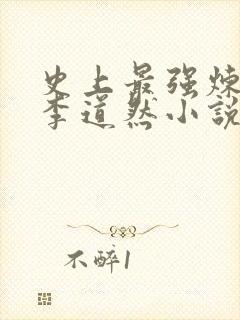 史上最强炼
李道然小説
不醉1